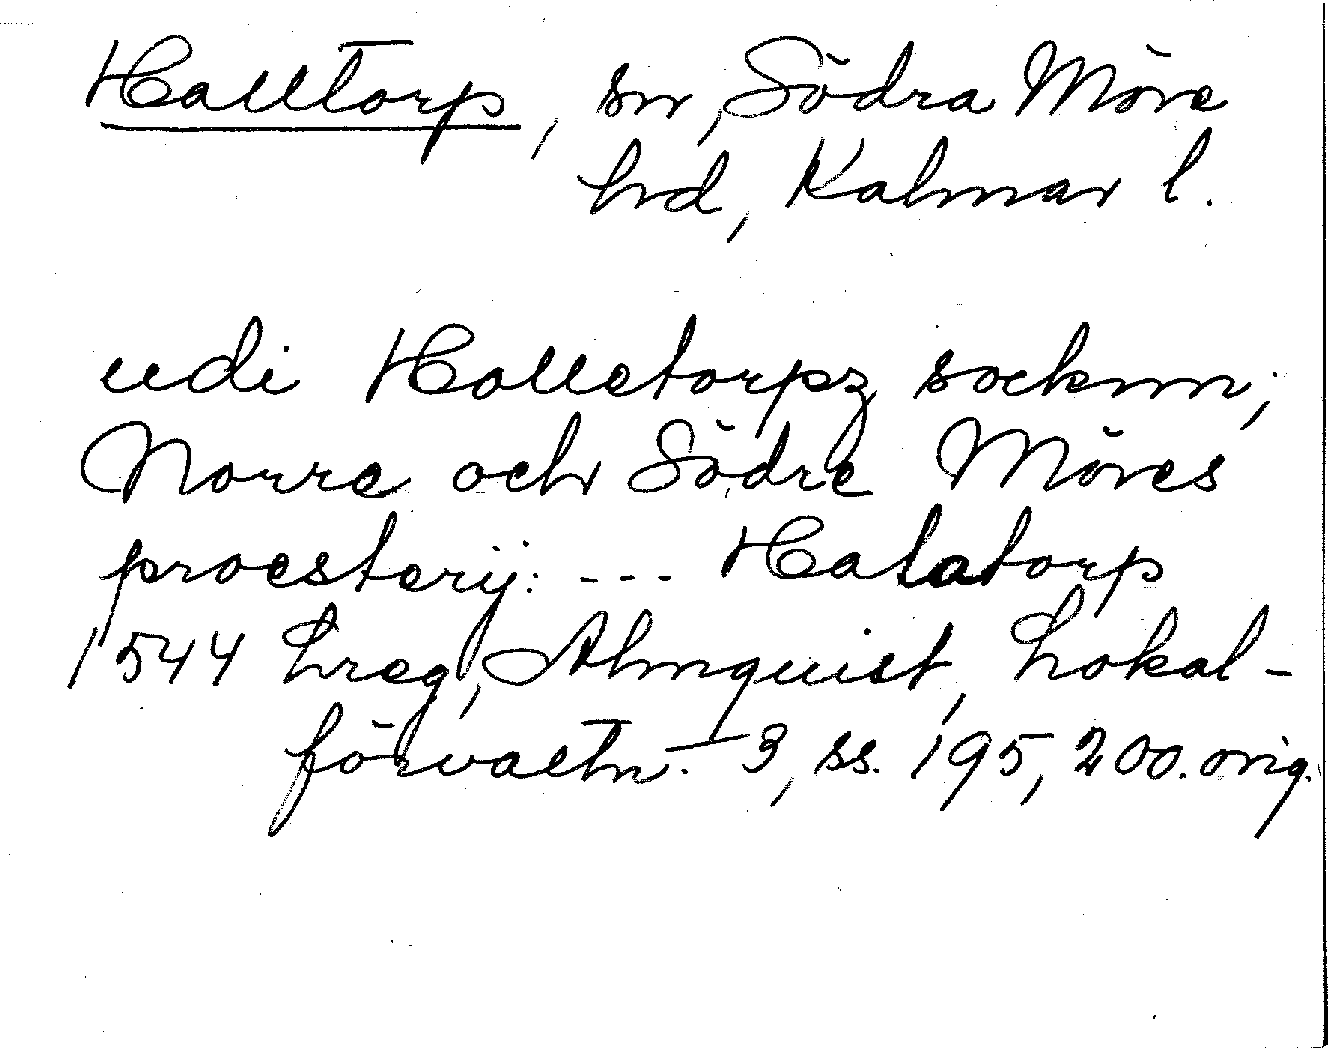 Halltorp, sn, Södra Möre
hd, Kalmar l.
udi Holletorpz socknn;
Norre och Södre Möres
proesterij: --- Halatorp
1544 Lreg, Almquist, Lokal-
förvaltn. 3, ss. 195, 200. orig.